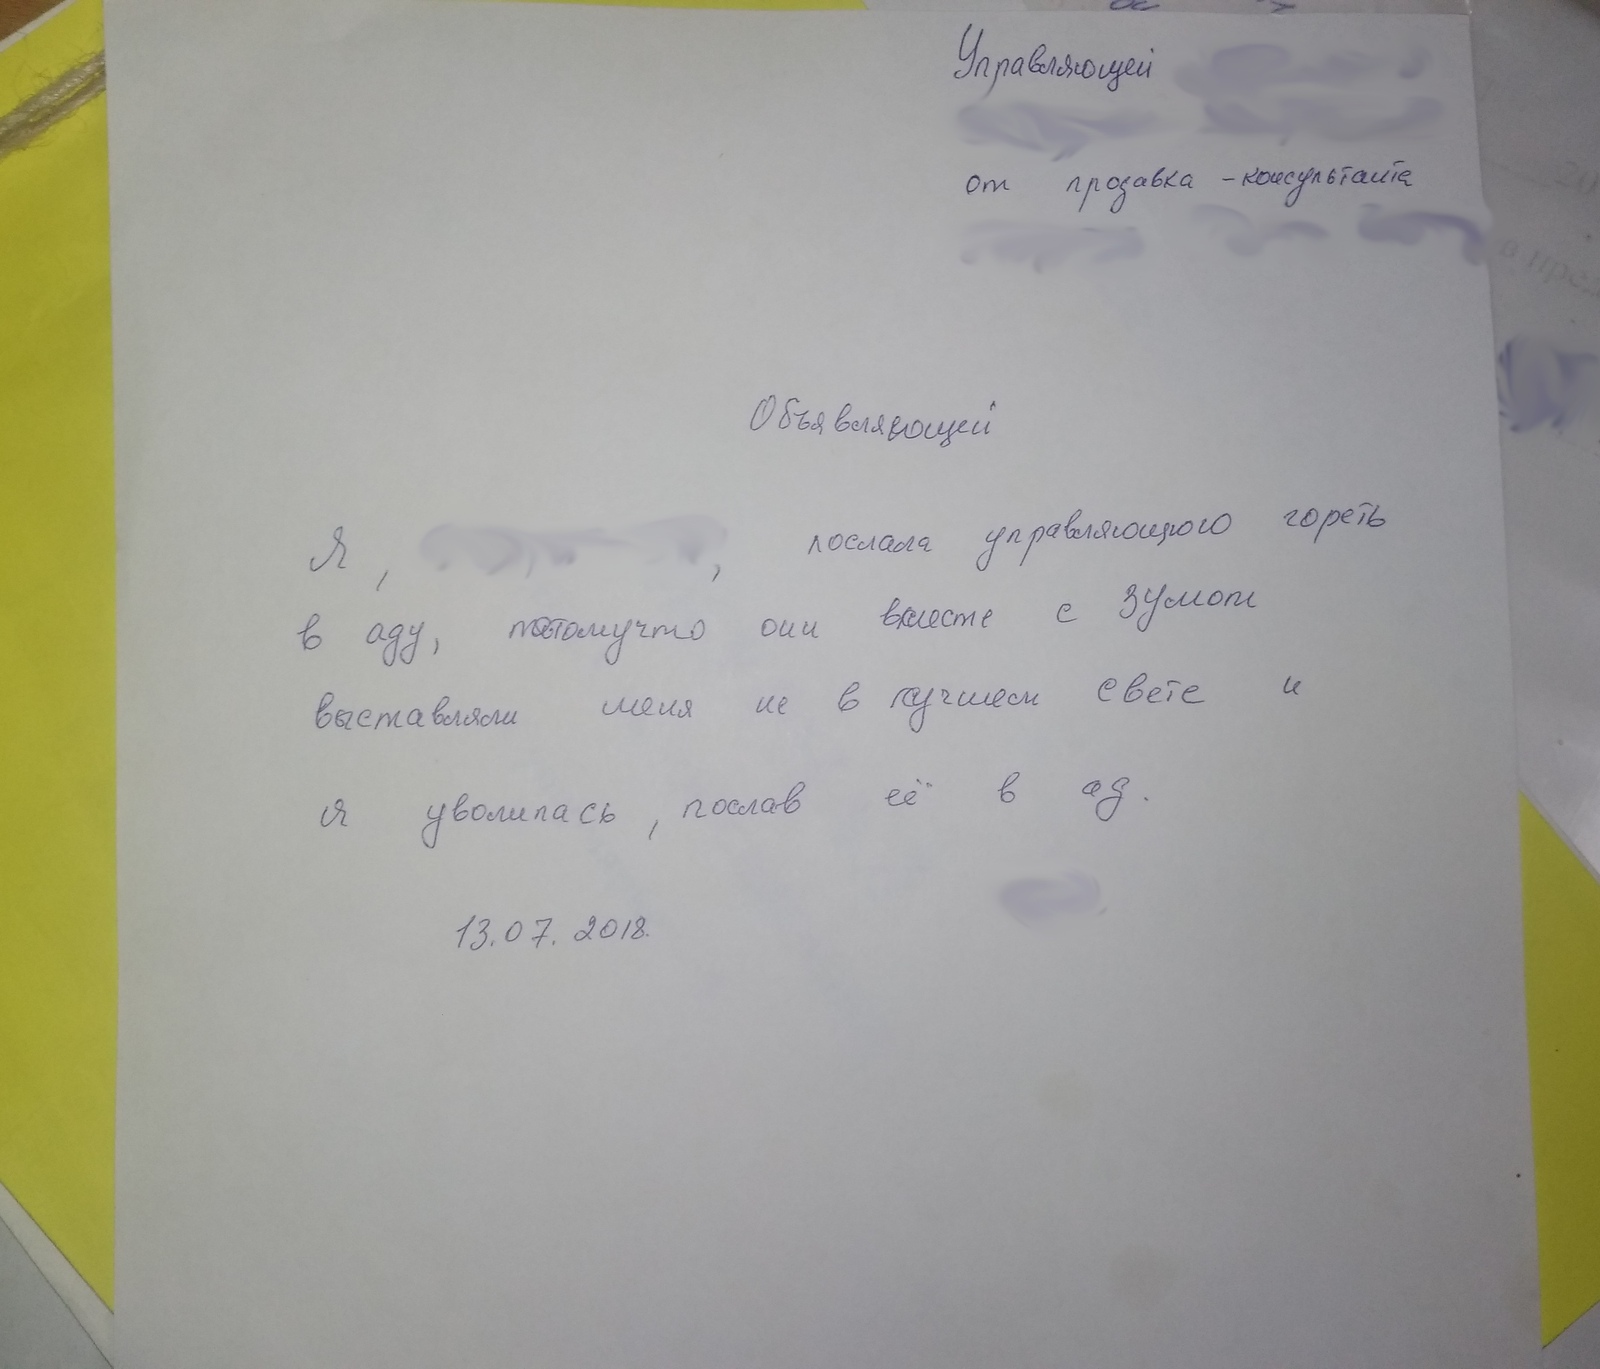 Управляющей
от прозавка - консультанта
Объявляющей
Я, , послала управляющого гореть
в аду, потомучто они вместе с зумом
выставляли меня не в лучшем свете и
я уволилась, послав её в ад.
13.07.2018.